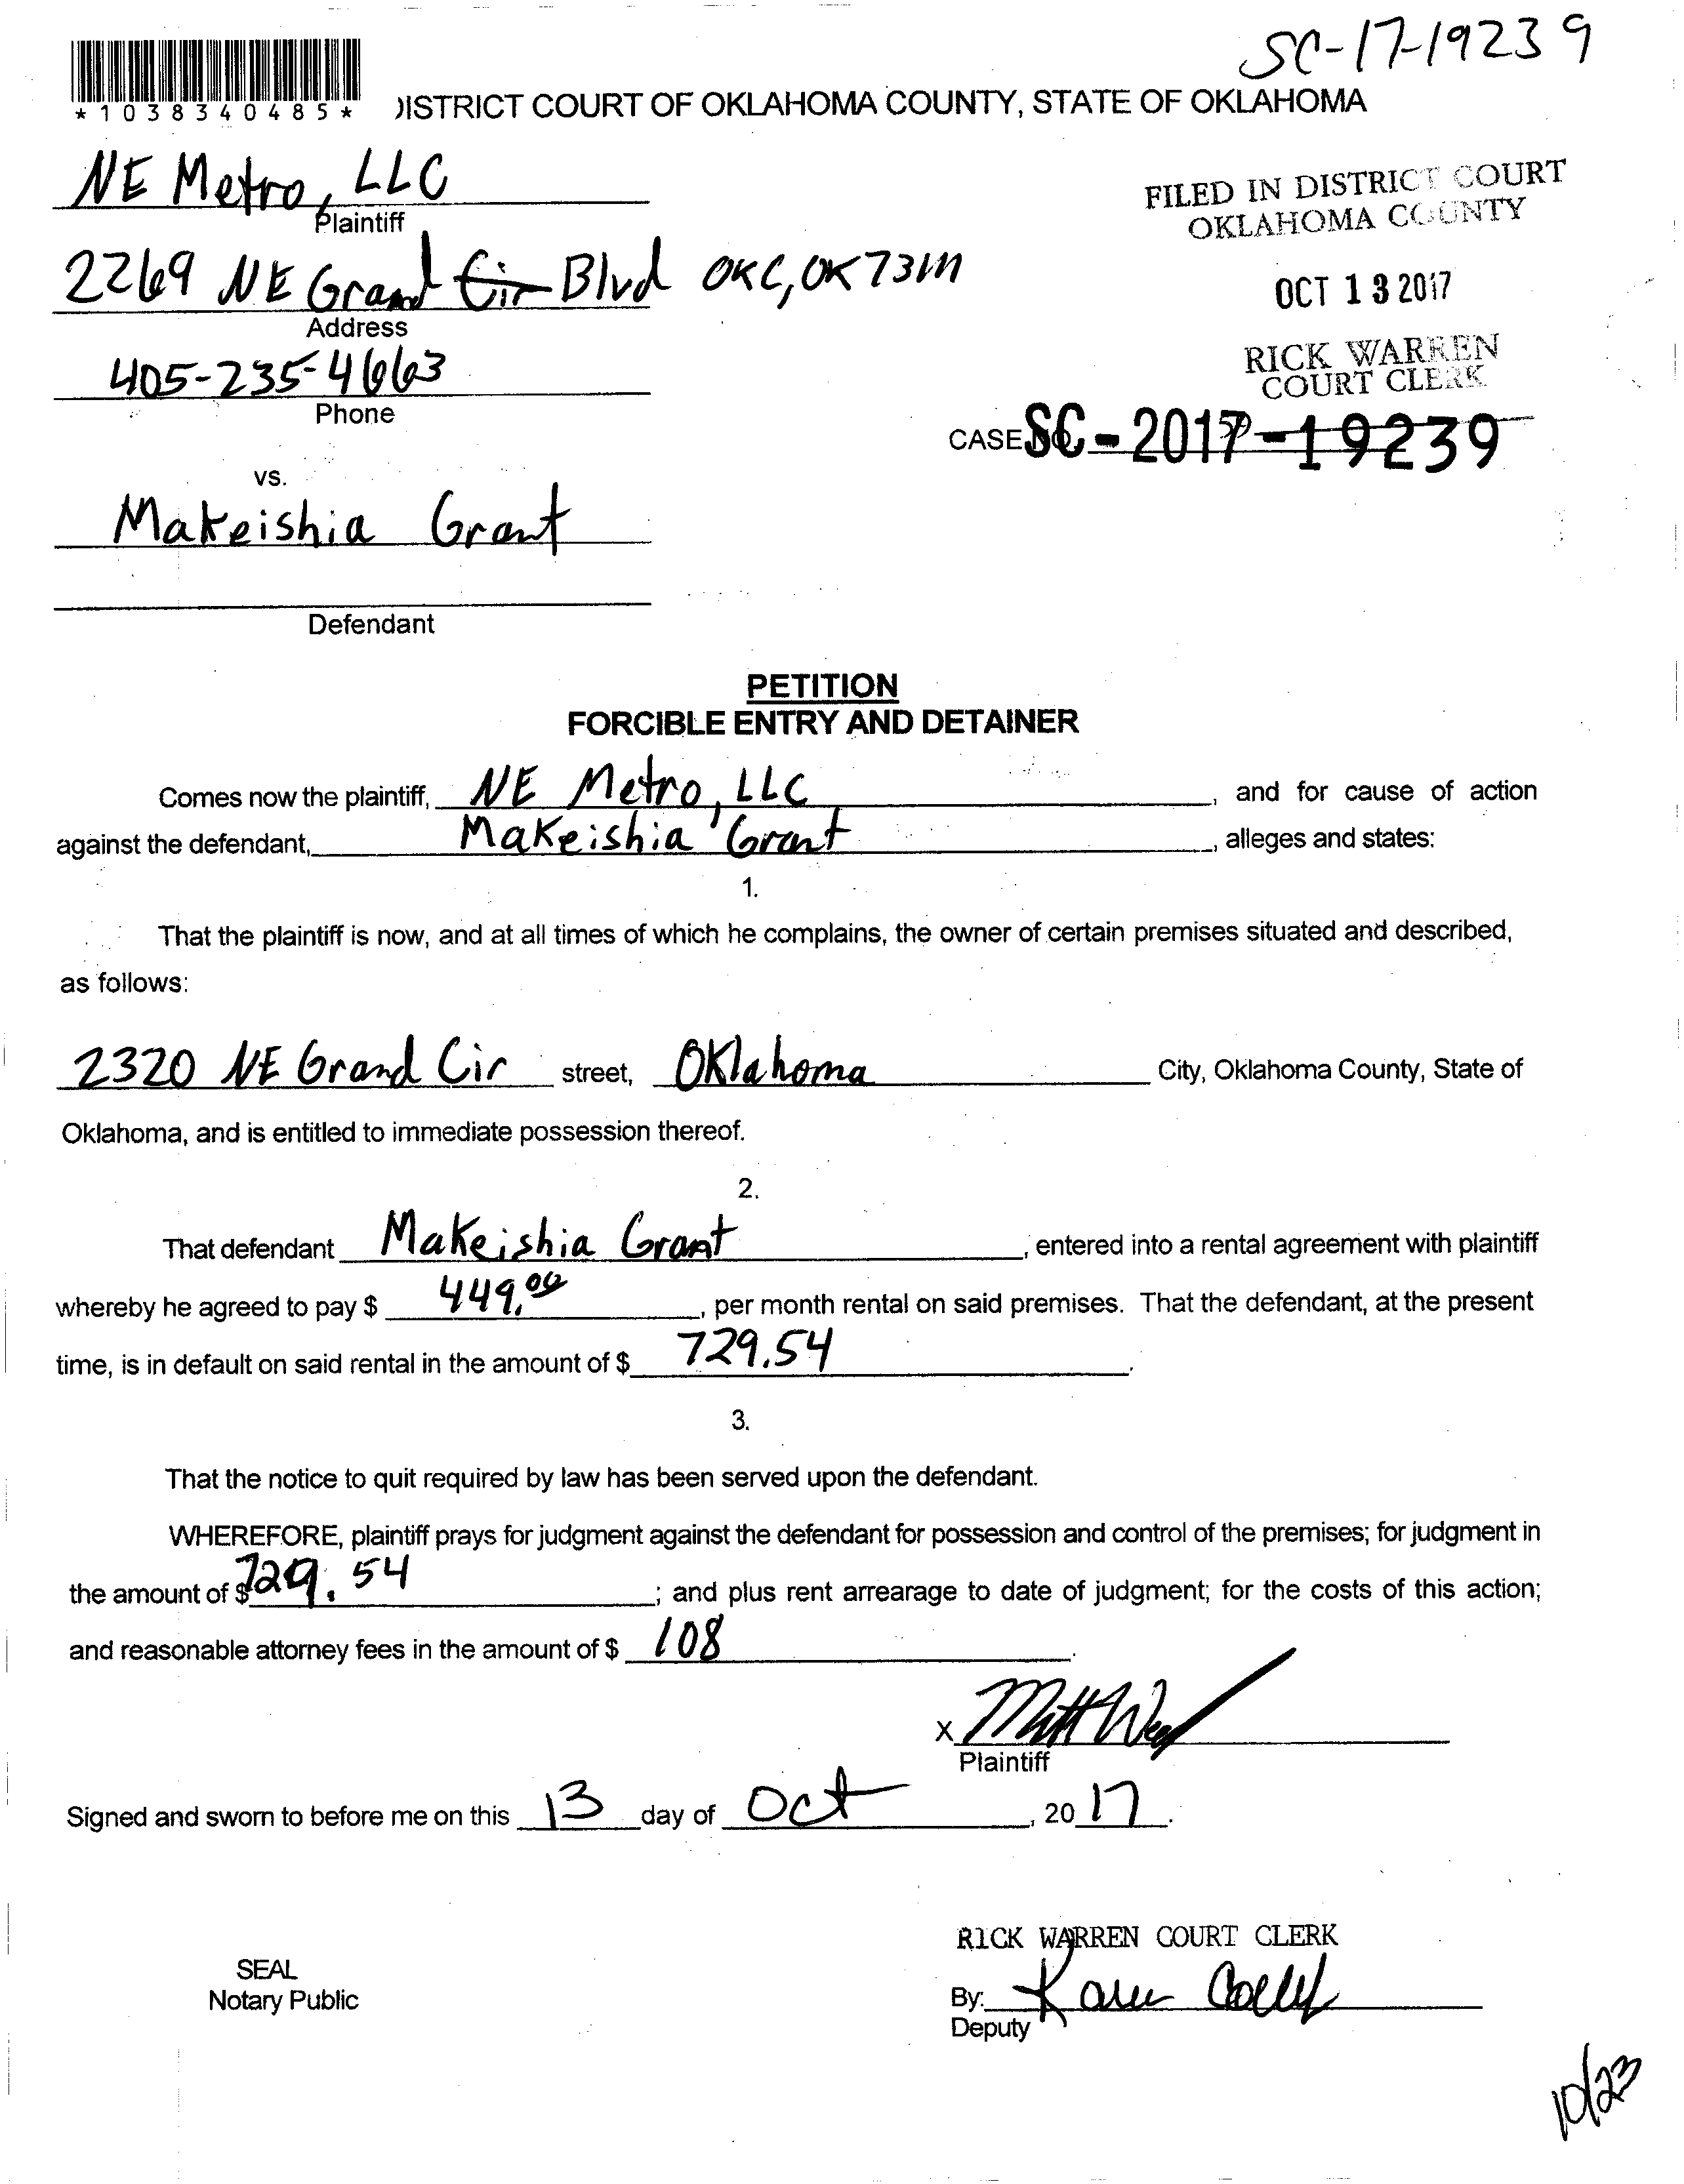 SC-17-19239
*1038340485*
DISTRICT COURT OF OKLAHOMA COUNTY, STATE OF OKLAHOMA
NE Metro, LLC
Plaintiff
FILED IN DISTRICT COURT
OKLAHOMA COUNTY
2269 NE Grand Cir Blvd OKC, OK 73111
Address
OCT 13 2017
405-235-4663
Phone
RICK WARREN
COURT CLERK
CASE NO. SC-2017-19239
vs.
Makeishia Grant
Defendant
PETITION
FORCIBLE ENTRY AND DETAINER
Comes now the plaintiff, NE Metro, LLC, and for cause of action
against the defendant, Makeishia Grant, alleges and states:
1.
That the plaintiff is now, and at all times of which he complains, the owner of certain premises situated and described,
as follows:
2320 NE Grand Cir street, Oklahoma City, Oklahoma County, State of
Oklahoma, and is entitled to immediate possession thereof.
2.
That defendant Makeishia Grant, entered into a rental agreement with plaintiff
whereby he agreed to pay $ 449.00, per month rental on said premises. That the defendant, at the present
time, is in default on said rental in the amount of $ 729.54.
3.
That the notice to quit required by law has been served upon the defendant.
WHEREFORE, plaintiff prays for judgment against the defendant for possession and control of the premises; for judgment in
the amount of $ 729.54; and plus rent arrearage to date of judgment; for the costs of this action;
and reasonable attorney fees in the amount of $ 108.
X Matt
Plaintiff
Signed and sworn to before me on this 13 day of Oct, 2017.
RICK WARREN COURT CLERK
SEAL
Notary Public
By: Karen
Deputy
10/23